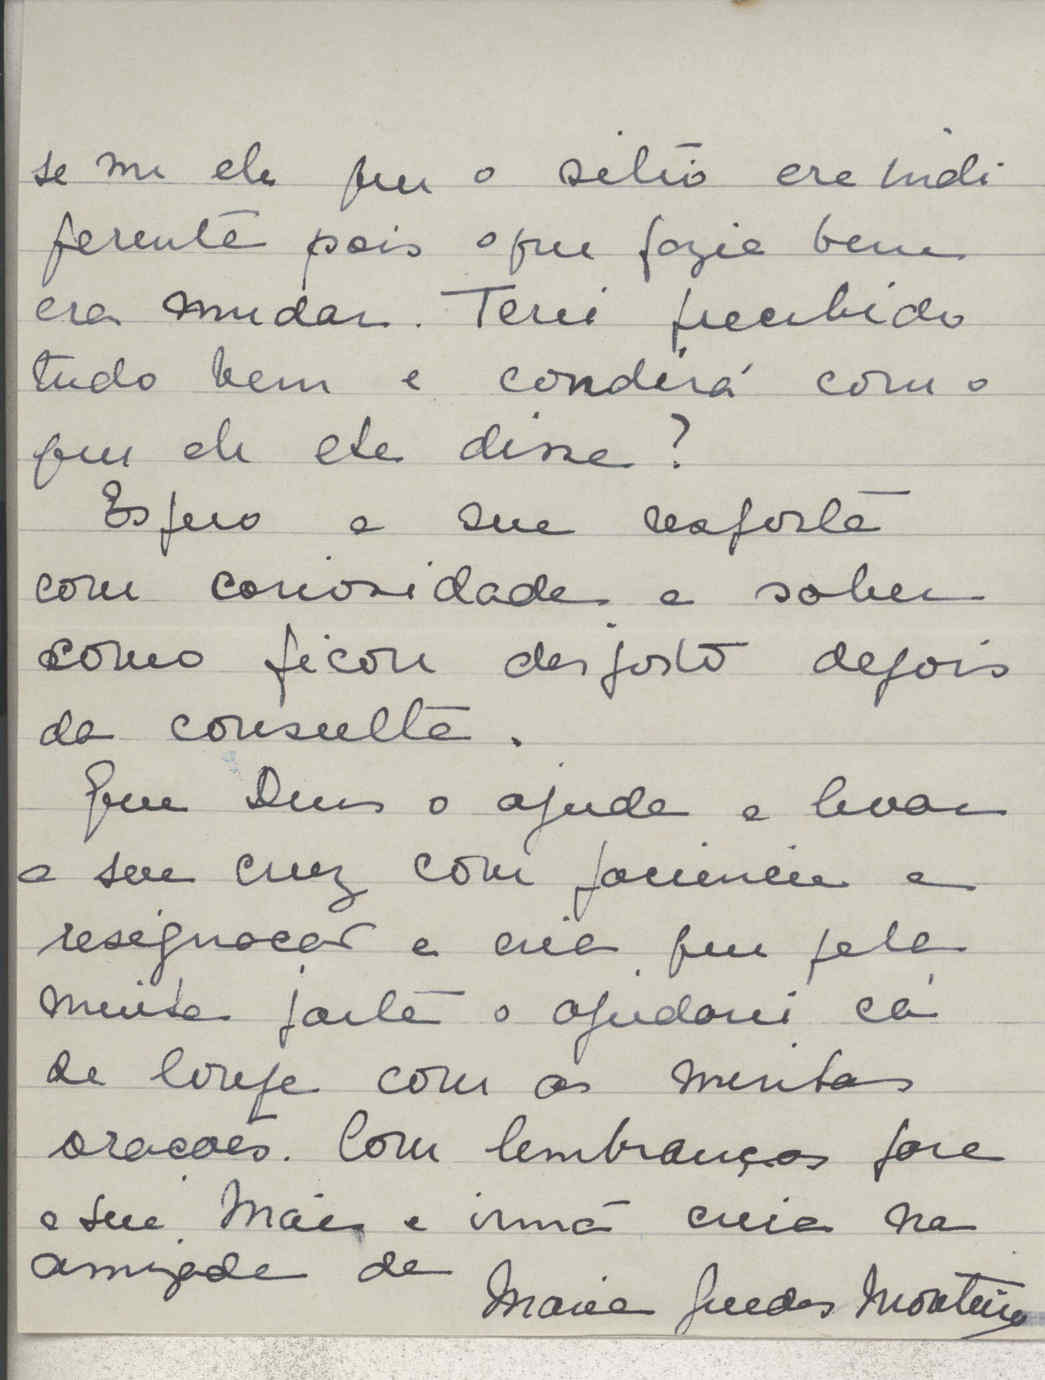 se me ele que o sitio era indi
ferente pois o que fazia bem
era mudar. Terei percebido
tudo bem e condirá com o
que ele lhe disse?
Espero a sua resposta
com coriosidade e saber
como ficou desposto depois
da consulta.
Que Deus o ajude a levar
a sua cruz com paciencia e
resignacão e creia que pela
minha parte o ajudarei cá
de longe com as minhas
oracoẽs. Com lembranças para
a sua Mãe e irmã creia na
amizade de
Maria Guedes Monteiro